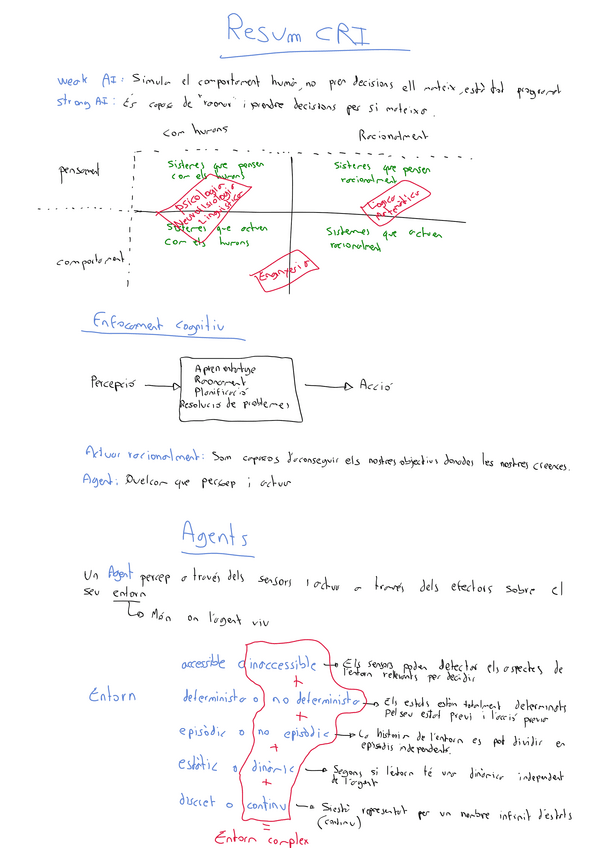 Resum CRI
weak AI: Simula el comportament humà, no pren decisions ell mateix, està tot programat
strong AI: És capaç de "raonar" i prendre decisions per si mateixa.
Com humans
Racionalment
pensament
Sistemes que pensen
com els humans
Sistemes que pensen
racionalment
Psicologia
Neurofisiologia
Lingüística
Lògica
Matemàtica
comportament
Sistemes que actuen
com els humans
Sistemes que actuen
racionalment
Enginyeria
Enfocament cognitiu
Percepció
Aprenentatge
Raonament
Planificació
Resolució de problemes
Acció
Actuar racionalment: Som capaços d'aconseguir els nostres objectius donades les nostres creences.
Agent: Quelcom que percep i actua
Agents
Un Agent percep a través dels sensors i actua a través dels efectors sobre el
seu entorn
Món on l'agent viu
Entorn
accessible o inaccessible
Els sensors poden detectar els aspectes de
l'entorn rellevants per decidir
+
determinista o no determinista
Els estats estan totalment determinats
pel seu estat previ i l'acció previa
+
episòdic o no episòdic
La història de l'entorn es pot dividir en
episodis independents.
+
estàtic o dinàmic
Segons si l'entorn té una dinàmica independent
de l'agent
+
discret o continu
Si està representat per un nombre infinit d'estats
(continu)
=
Entorn complex